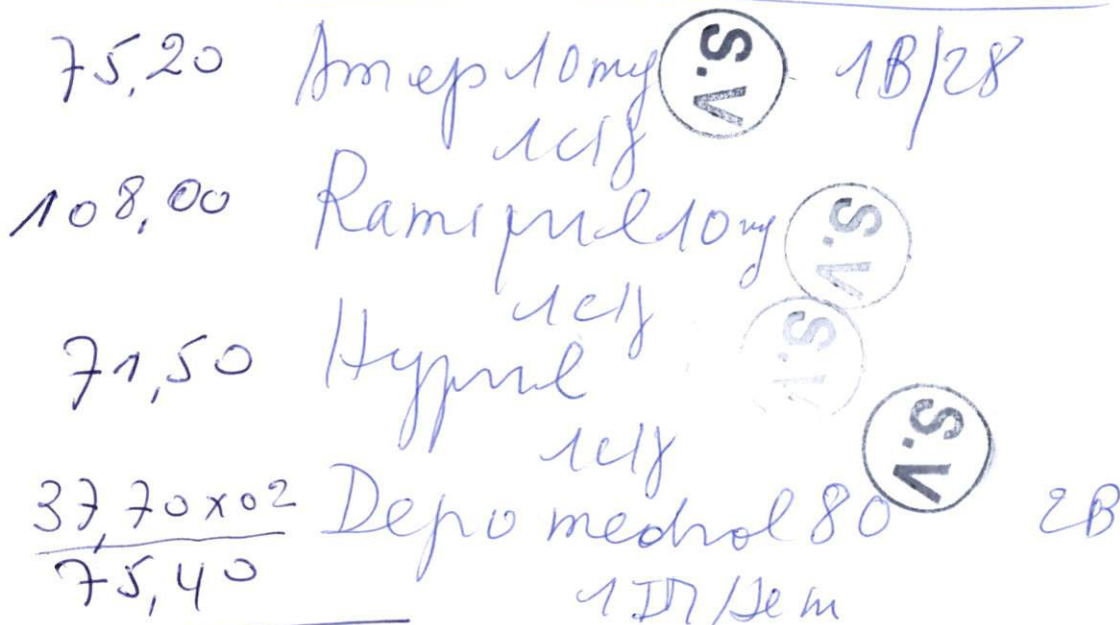 75,20 Amep 10mg S.V 1B/28
1c/j
108,00 Ramipril 10mg S.V
1c/j
71,50 Hypril S.V
1c/j
S.V
37,70x02 Depo medrol 80 2B
75,40 1 IM/Sem